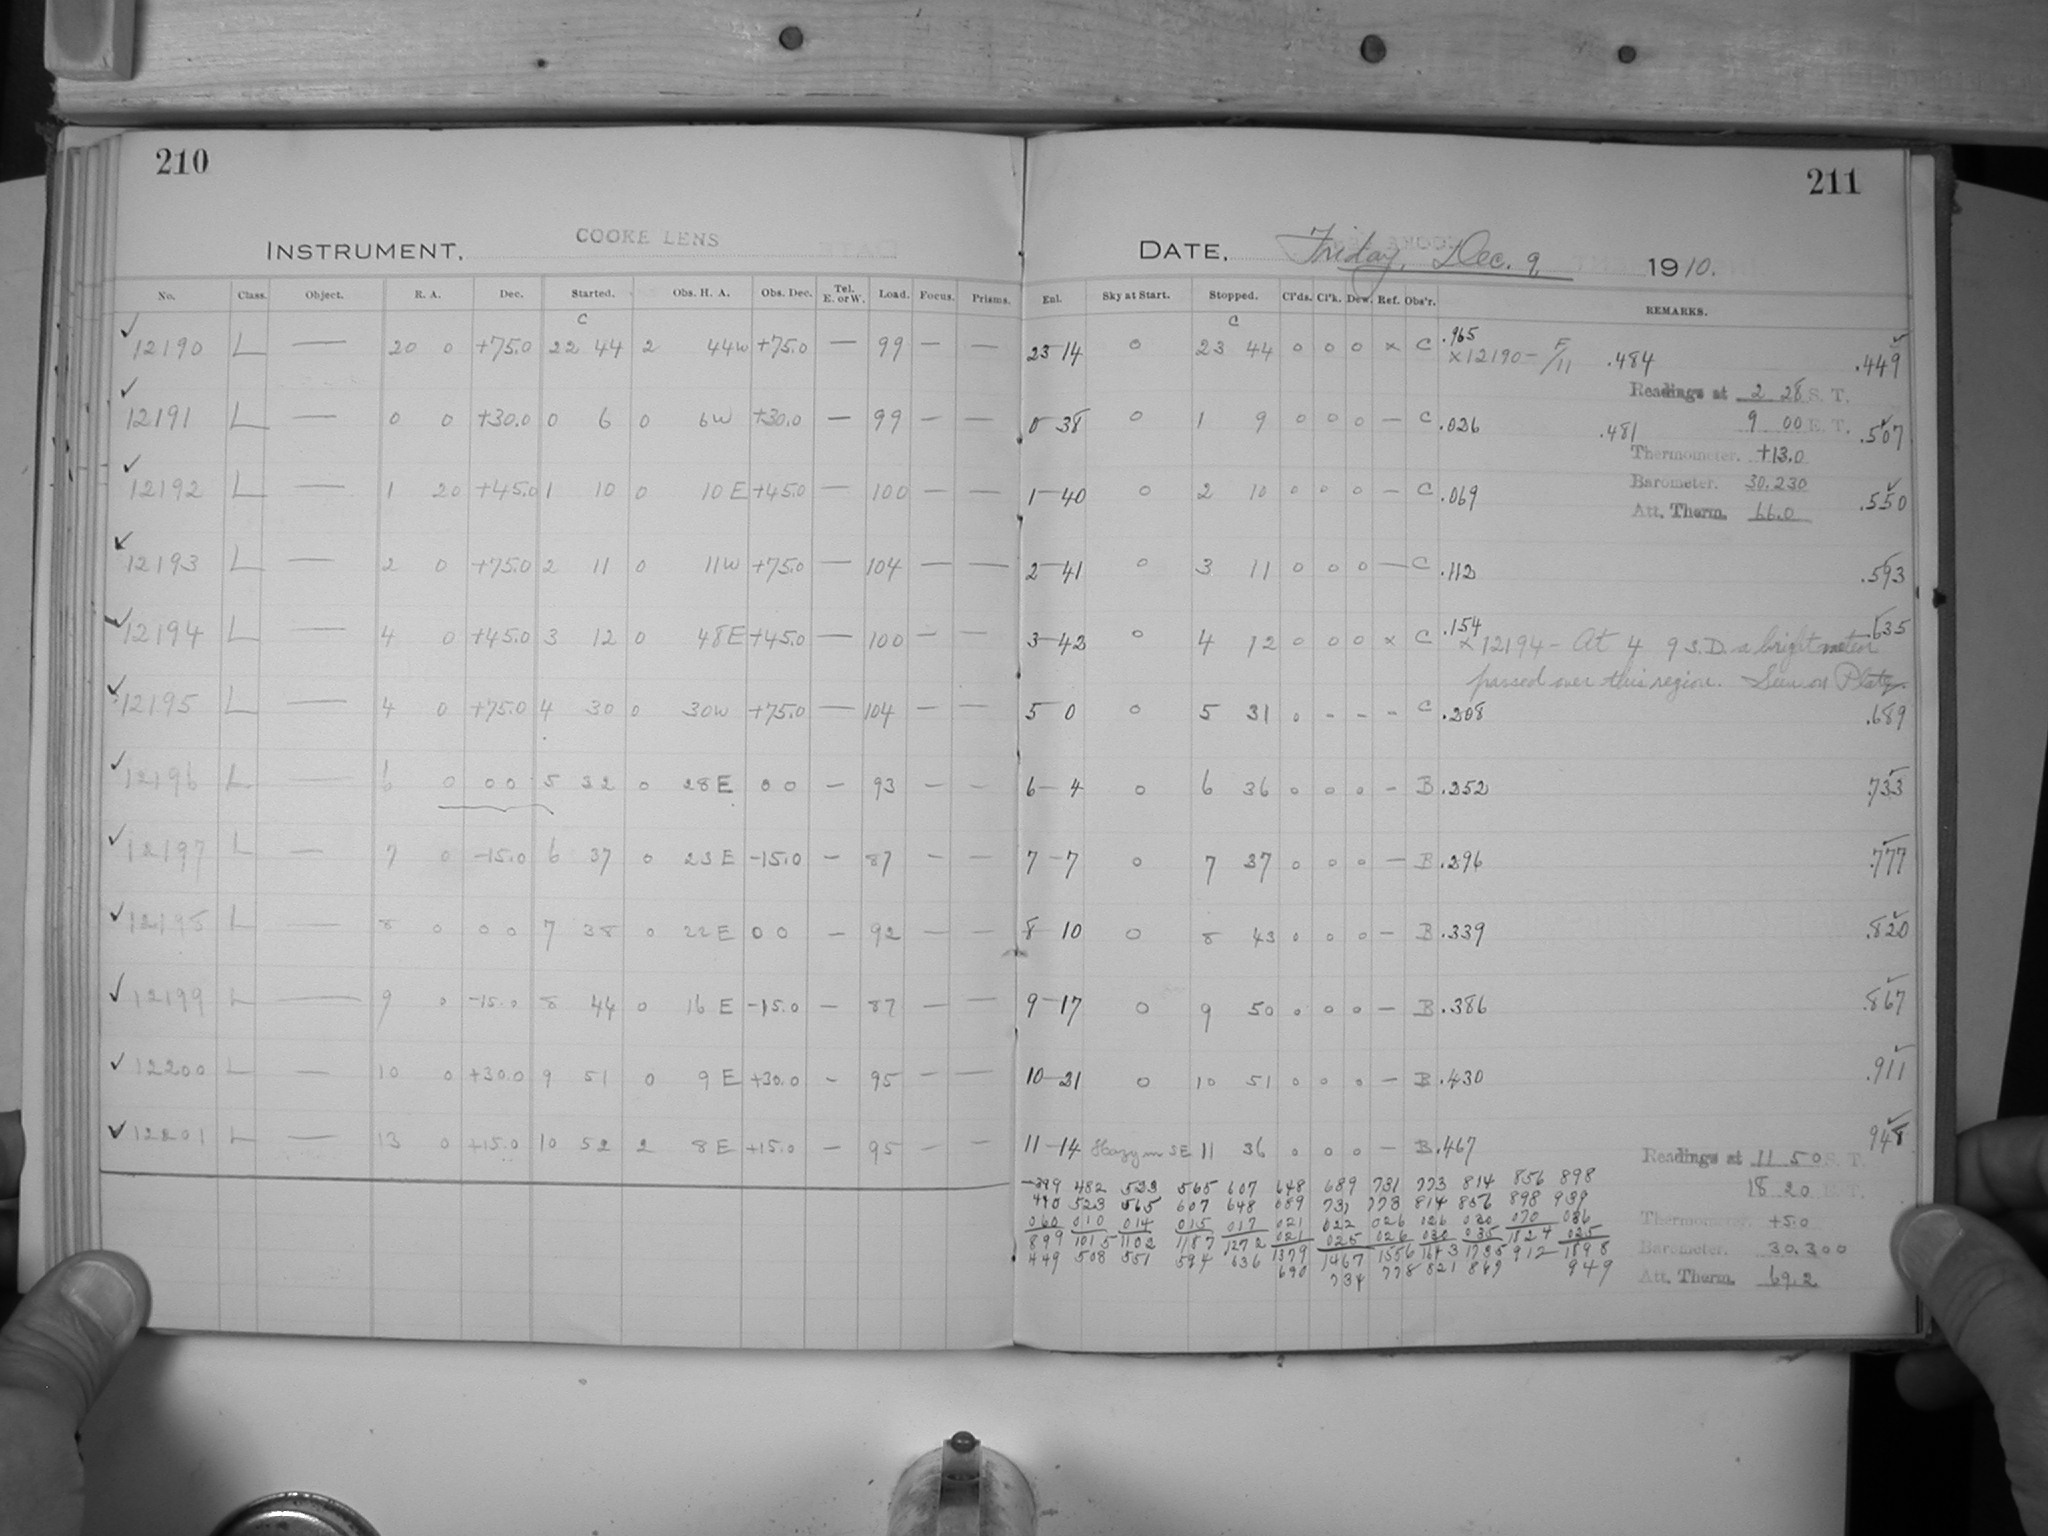 210
INSTRUMENT. COOKE LENS
No. Class. Object. R. A. Dec. Started. Obs. H. A. Obs. Dec. Tel. E. or W. Load. Focus. Prisms.
C
✓ 12190 L — 20 0 +75.0 22 44 2 44W +75.0 — 99 — —
✓ 12191 L — 0 0 +30.0 0 6 0 6W +30.0 — 99 — —
✓ 12192 L — 1 20 +45.0 1 10 0 10E +45.0 — 100 — —
✓ 12193 L — 2 0 +75.0 2 11 0 11W +75.0 — 104 — —
✓ 12194 L — 4 0 +45.0 3 12 0 48E +45.0 — 100 — —
✓ 12195 L — 4 0 +75.0 4 30 0 30W +75.0 — 104 — —
✓ 12196 L — 6 0 0 0 5 32 0 28E 0 0 — 93 — —
✓ 12197 L — 7 0 -15.0 6 37 0 23E -15.0 — 87 — —
✓ 12198 L — 8 0 0 0 7 38 0 22E 0 0 — 92 — —
✓ 12199 L — 9 0 -15.0 8 44 0 16E -15.0 — 87 — —
✓ 12200 L — 10 0 +30.0 9 51 0 9E +30.0 — 95 — —
✓ 12201 L — 13 0 +15.0 10 52 2 8E +15.0 — 95 — —
211
DATE. Friday, Dec. 9 1910.
Enl. Sky at Start. Stopped. Cl'ds. Cl'k. Dew. Ref. Obs'r. REMARKS.
C
23-14 0 23 44 0 0 0 × C .965
×12190 - F/11 .484 .449 ✓
Readings at 2 28 S. T.
0 38 0 1 9 0 0 0 — C .026 .481 9 00 E. T. .507 ✓
Thermometer. +13.0
Barometer. 30.230
1-40 0 2 10 0 0 0 — C .069 .550 ✓
Att. Therm. 66.0
2-41 0 3 11 0 0 0 — C .112 .593 ✓
3-42 0 4 12 0 0 0 × C .154 .635
×12194 - At 4 9 S.D. a bright meteor
passed over this region. Seen on Plate.
5 0 0 5 31 0 - - - C .208 .689
6-4 0 6 36 0 0 0 - B .252 .733 ✓
7-7 0 7 37 0 0 0 — B .296 .777 ✓
8 10 0 8 43 0 0 0 — B .339 .820 ✓
9-17 0 9 50 0 0 0 — B .386 .867 ✓
10-21 0 10 51 0 0 0 — B .430 .911 ✓
11-14 Hazy in SE 11 36 0 0 0 — B .467 948 ✓
Readings at 11 50 S. T.
482 523 565 607 648 689 731 773 814 856 898
18 20 E. T.
523 565 607 648 689 731 773 814 856 898 939
Thermometer. +5.0
060 010 014 015 017 021 022 026
899 1015 1102 1187 1272 1379 1467 1556 1643 1735 1824 1898
Barometer. 30.300
449 508 551 594 636 690 734 778 821 912 949
Att. Therm. 69.2